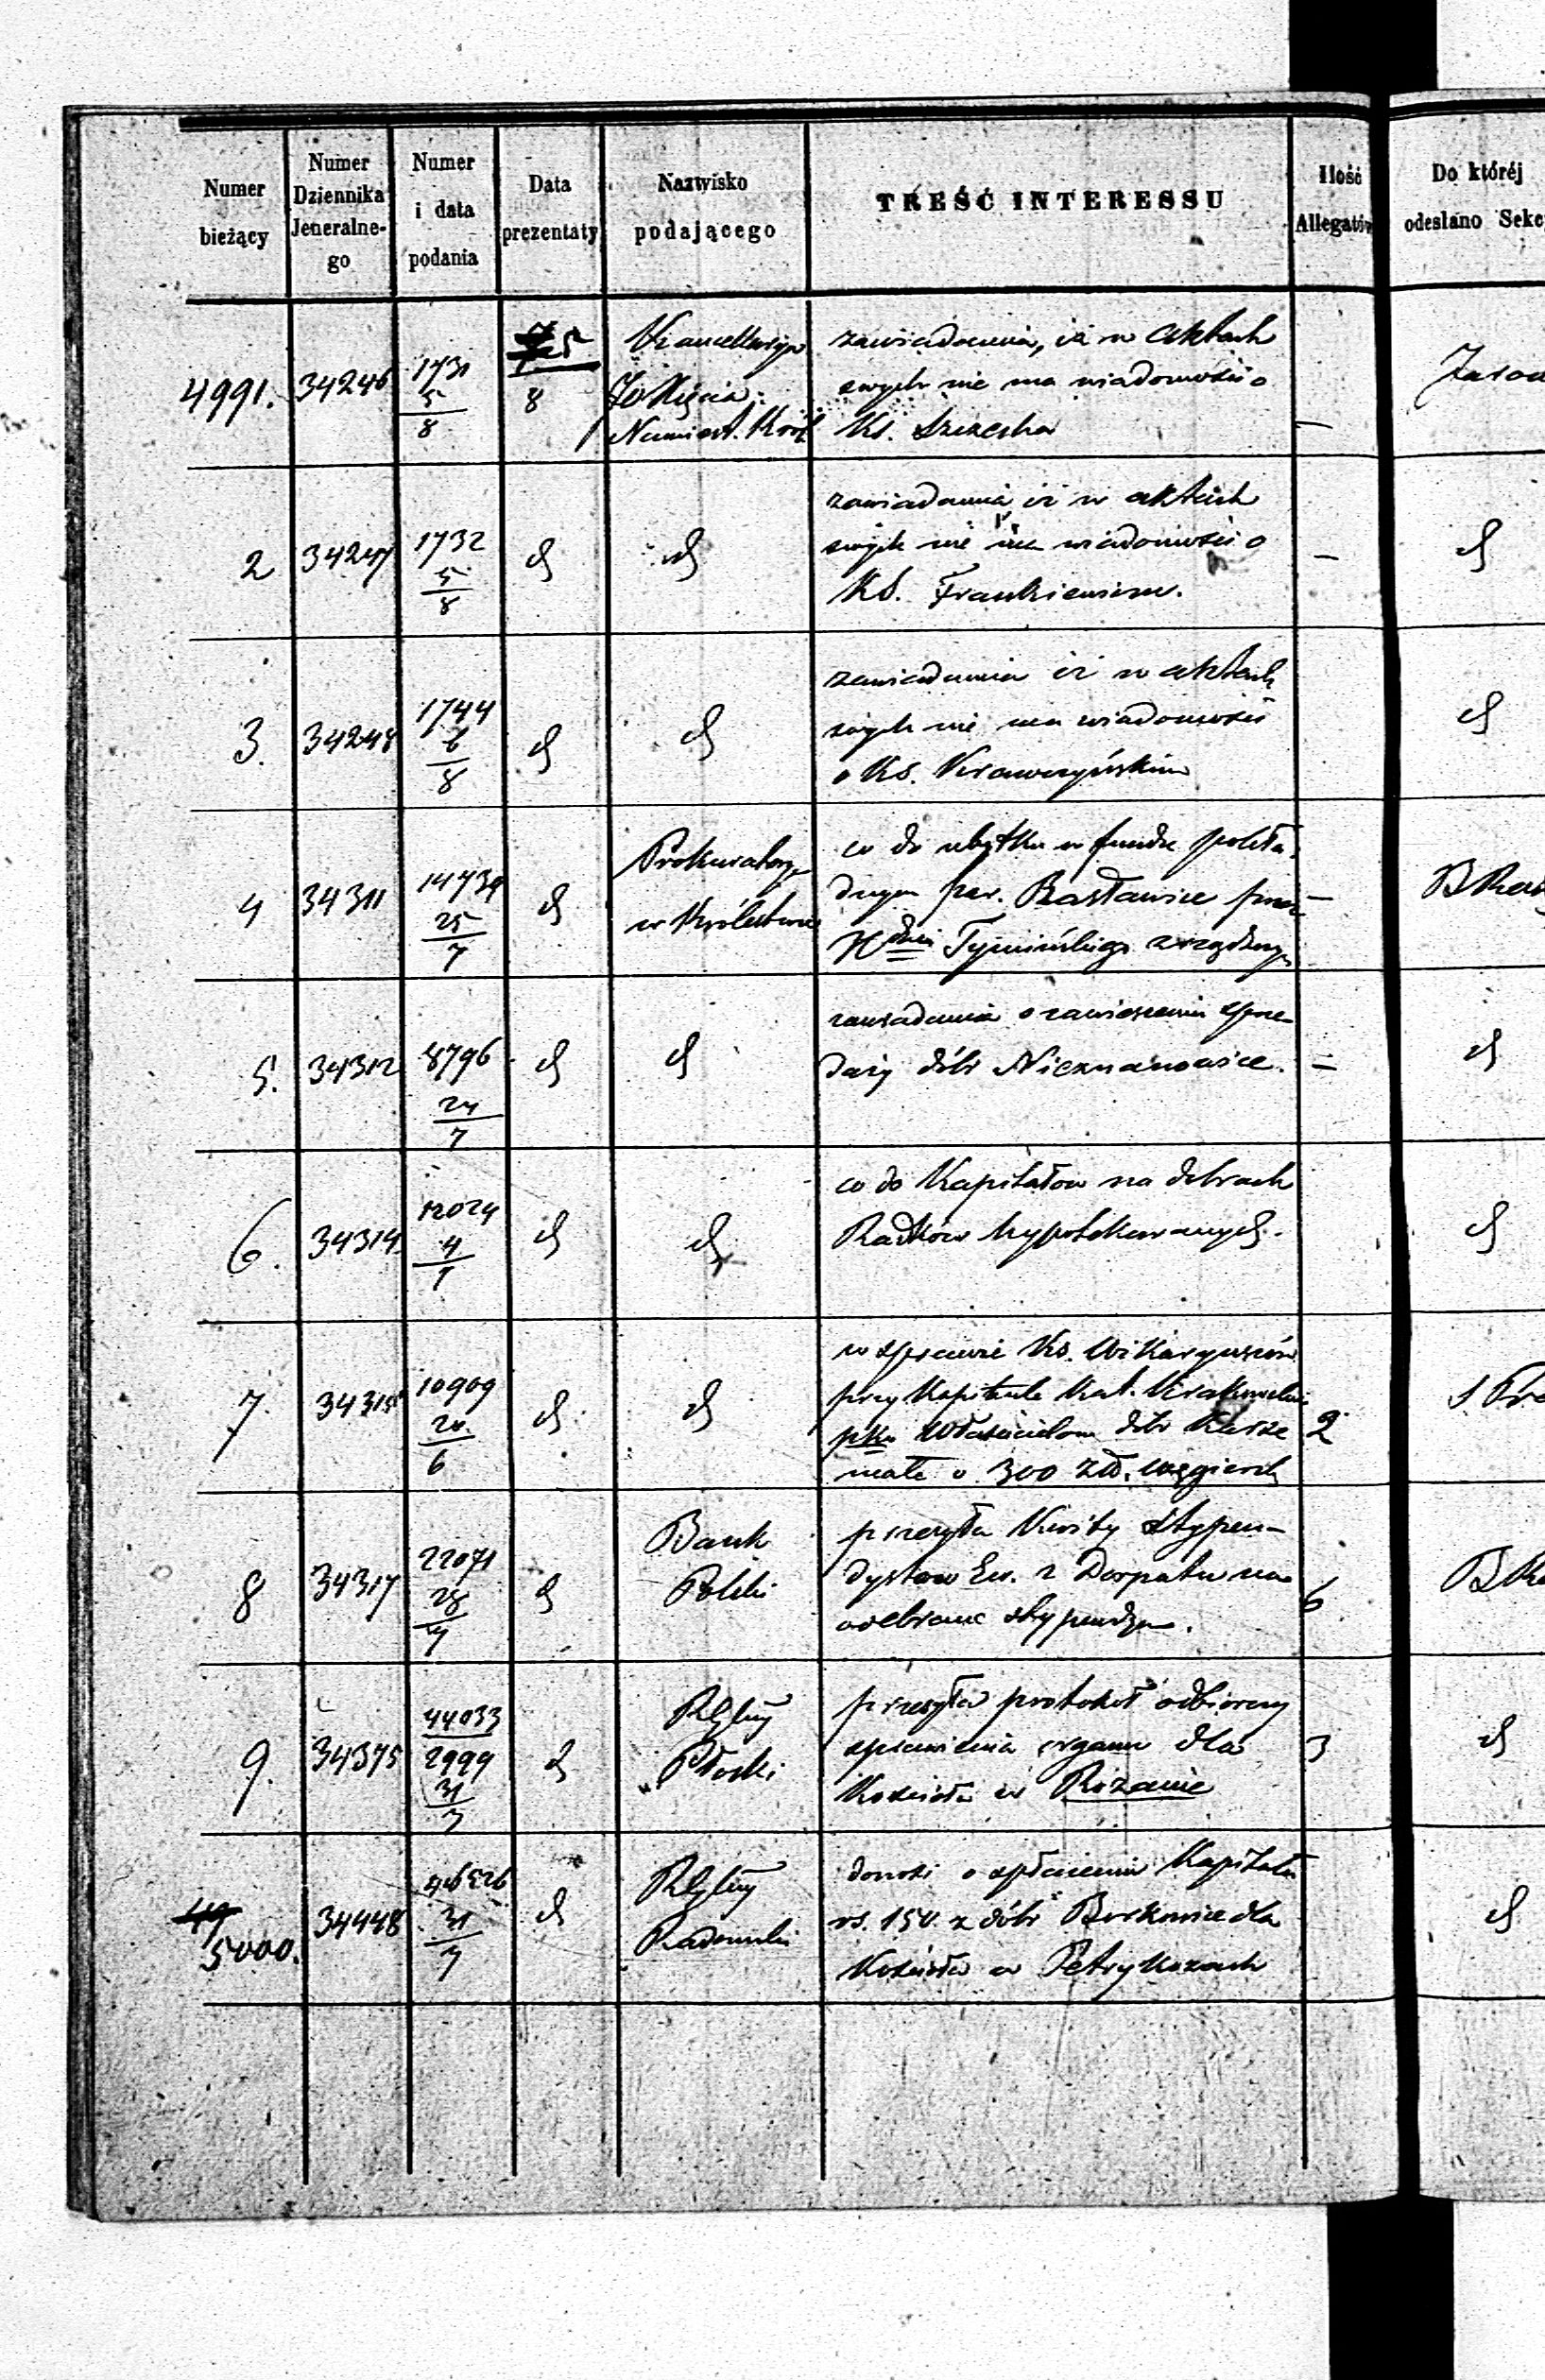 Numer bieżący
Numer Dziennika Jeneralne-go
Numer i data podania
Data prezentaty
Nazwisko podającego
TREŚĆ INTERESSU
Ilość Allegatów
Do któréj odesłano Sekc
4991. 34246 1731 5/8 5/8
Kancellaryja
JO Xięcia
Namiest. Król
zawiadamia, iż w aktach
swych nie ma wiadomości o
Ks. —
2 34247 1732 5/8 d
d
zawiadamia iż w aktach
swych nie ma wiadomości o —
Ks. Frankiewiczu.
d
3. 34248 1744 6/8 d
d
zawiadamia iż w aktach
swych nie ma wiadomości
o Ks. Krawczyńskim
d
4 34311 14739 25/7 d
Prokuratorya
w Królestwie
co do ubytku w fundu pokła-
dnym par. Racławice przez —
Tymińskiego
5. 34312 8796 24/7 d
d
zawiadamia o zawieszeniu sprze-
daży dóbr Nieznanowice. —
d
6. 34314 12024 4/7 d
d
co do Kapitałów na dobrach
Radków hypotekowanych.
d
7. 34315 10909 20/6 d
d
w sprawie Ks. Wikaryuszów
przy Kapitule Kat. Krakowskiej
pko Właścicielom dóbr 2
małe o 300 Zł. węgiersk
8 34317 22071 28/7 d
Bank
Polski
przesyła Kwity Stypen-
dystów Ew. z Dorpatu na 6
odebrane stypendya.
9. 34375 44033/2999 31/7 d
R Gbny
Płocki
przesyła protokół odbiorczy
sprawienia organu dla 3
Kościoła w Rożanie
d
5000. 34448 31/7 d
R Gbny
Radomski
donosi o spłaceniu Kapitału
rs. 150. z dóbr Borkowice dla
Kościoła w Petrykozach
d